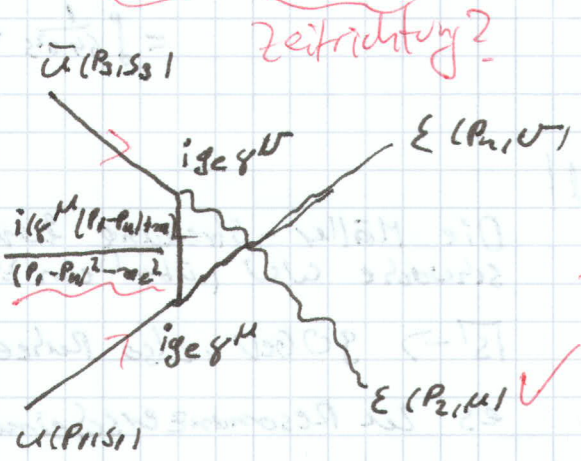 Zeitrichtung?
ū(P3,S3)
ε(P4,ν)
igeγ^ν
i(γ^μ(P1-P4)+m)
(P1-P4)²-me²
igeγ^μ
ε(P2,μ)
u(P1,S1)